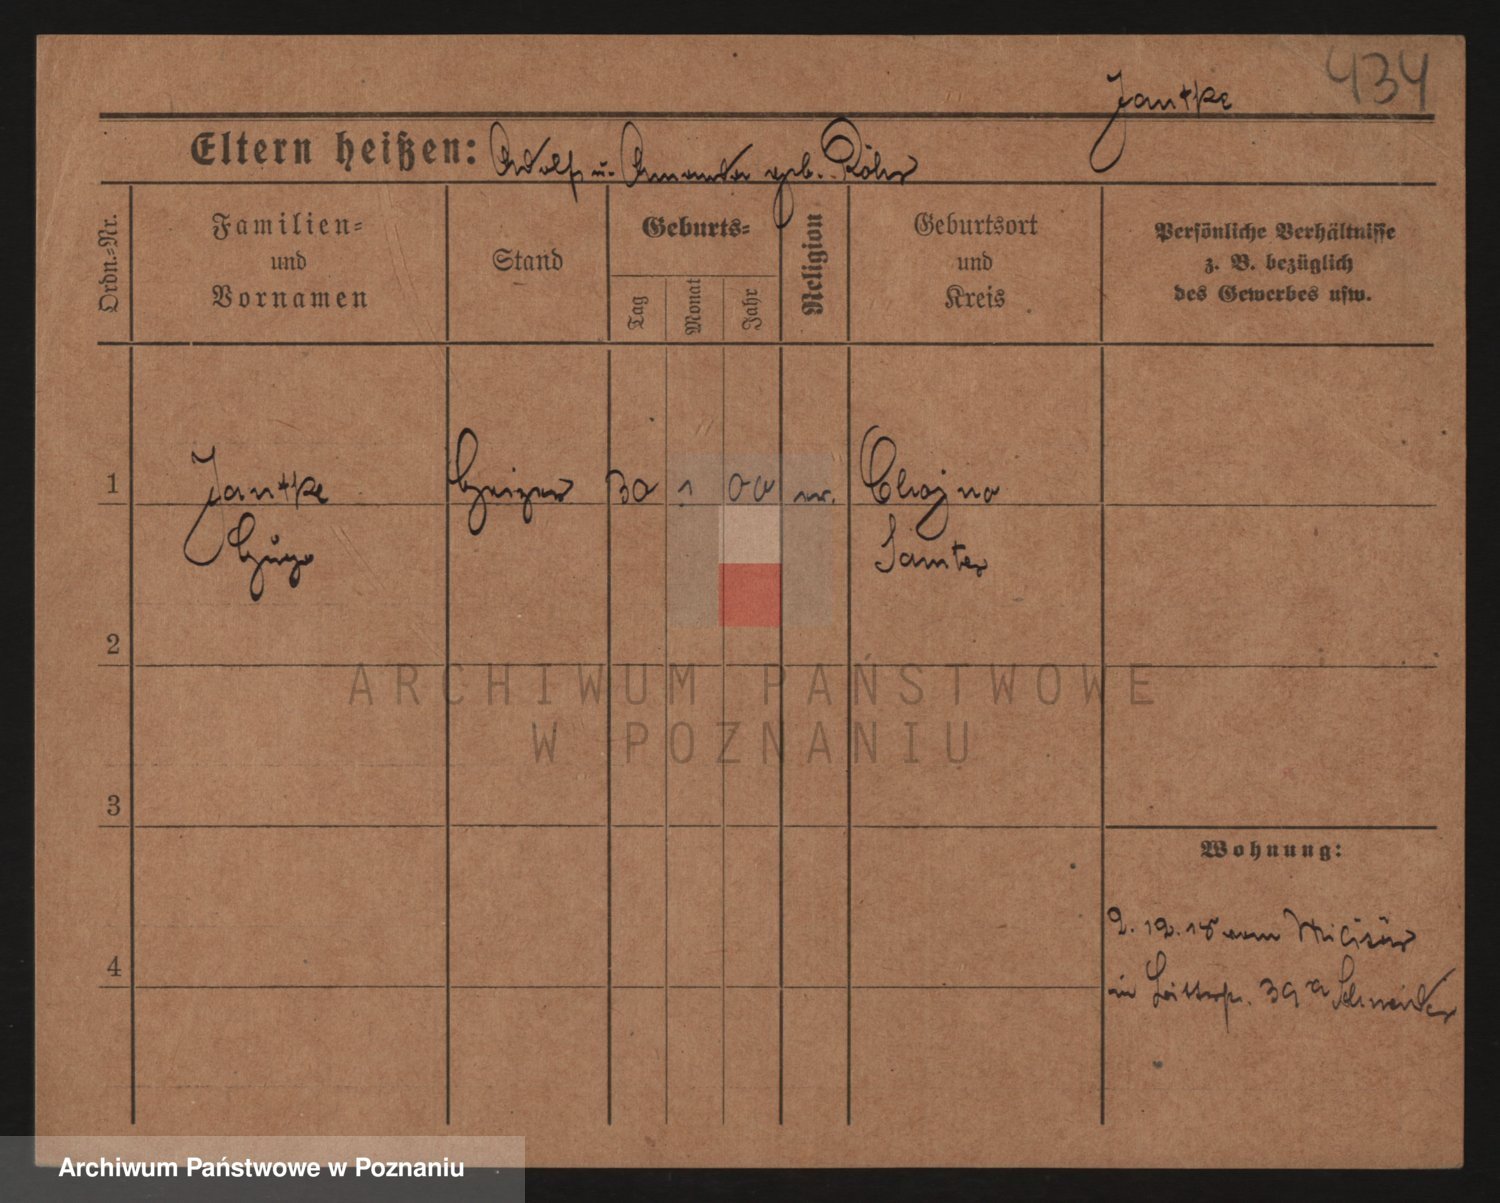 434
Jantke
Eltern heißen: Adolf u. Amanda geb. Röhr
Ordn.-Nr.
Familien-
und
Vornamen
Stand
Geburts-
Tag
Monat
Jahr
Religion
Geburtsort
und
Kreis
Persönliche Verhältnisse
z. B. bezüglich
des Gewerbes usw.
1 Jantke Heizer 30 1 00 ev. Chojno
Hugo Samter
2
ARCHIWUM PAŃSTWOWE
W POZNANIU
3
Wohnung:
2.12.18 vom Militär
4
in 39a Schneider
Archiwum Państwowe w Poznaniu